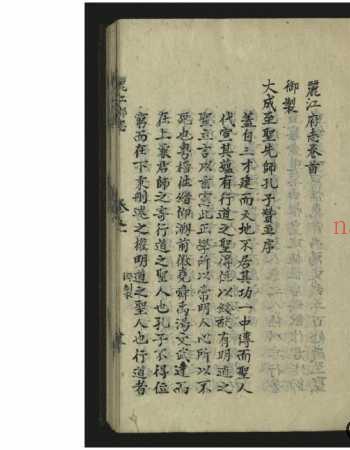 麗江府志卷首
御製
大成至聖先師孔子贊並序
蓋自三才建而天地不居其功一中傳而聖人
代宣其蘊有行道之聖得位以綏猷有明道之
聖立言以垂憲此正學所以常明人心所以不
泯也粵稽往緒仰溯前徽堯舜禹湯文武達而
在上兼君師之寄行道之聖人也孔子不得位
窮而在下秉刪述之權明道之聖人也行道者
麗江府志
卷首
御製